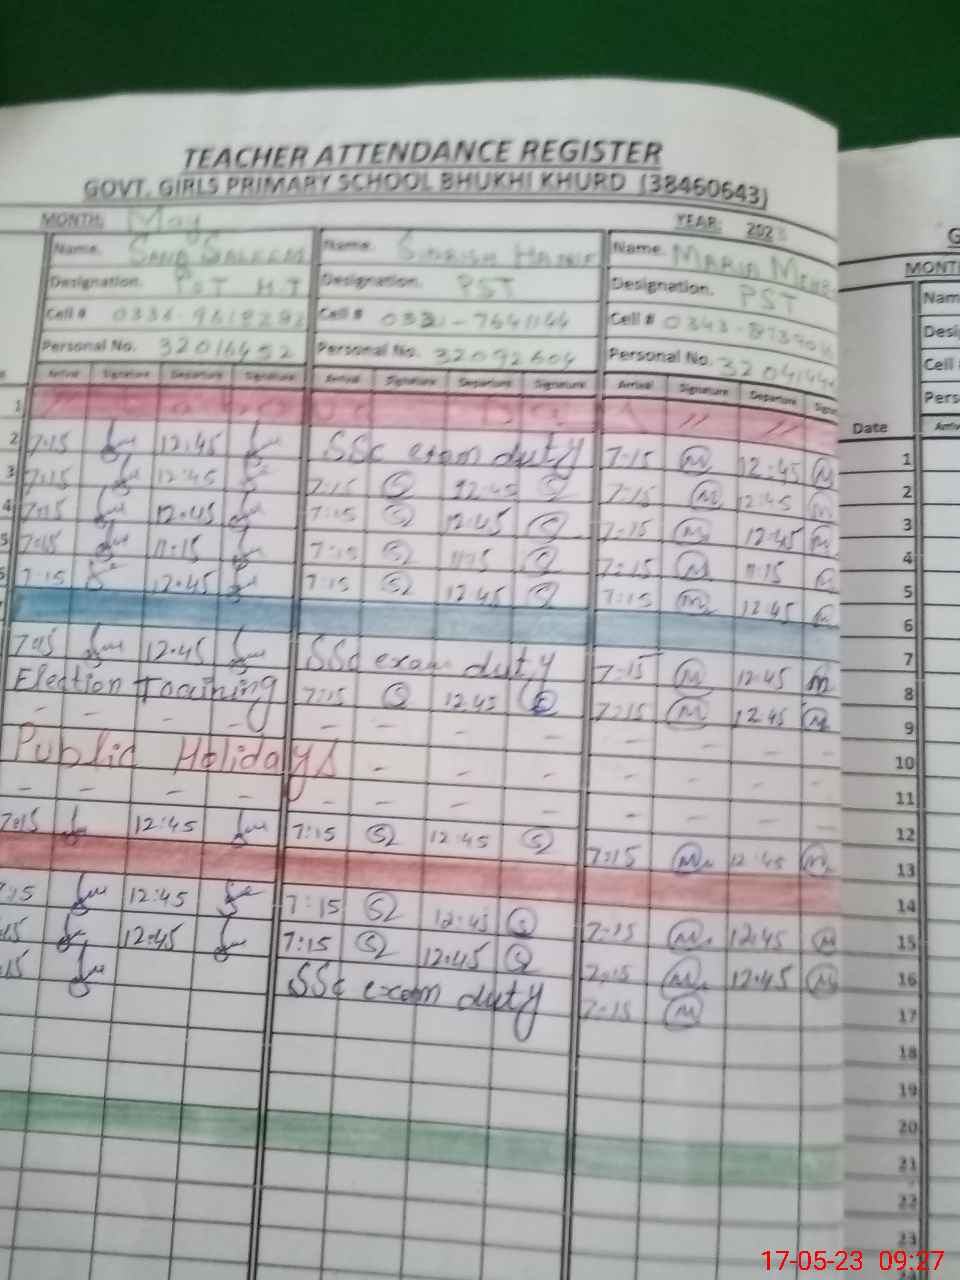 TEACHER ATTENDANCE REGISTER
GOVT. GIRLS PRIMARY SCHOOL BHUKHI KHURD (38460643)
MONTH: May YEAR: 202
Name. SANA SALEEM Name. HANIF Name. MARIA
Designation. PST H.T Designation. PST Designation. PST
Cell # Cell # 0331-7641144 Cell # 0343-
Personal No. 32016452 Personal No. 32092604 Personal No.
Arrival Signature Departure Signature Arrival Signature Departure Signature Arrival Signature Departure
1
2 7:15 12:45 SSc exam duty 7:15 M 12:45 M
3 7:15 12:45 7:15 S 12:45 S 7:15 M 12:45 M
4 7:15 12:45 7:15 S 12:45 S 7:15 M 12:45 M
5 7:15 11:15 7:15 S 11:15 S 7:15 M 11:15 M
6 7:15 12:45 7:15 S 12:45 S 7:15 M 12:45 M
7:15 12:45 SSc exam duty 7:15 M 12:45 M
Election Training 7:15 S 12:45 S 7:15 M 12:45 M
- - - - - - - - - -
Public Holidays - - - - - - -
- - - - - - - - - - - -
7:15 12:45 7:15 S 12:45 S 7:15 M 12:45 M
:15 12:45 7:15 S 12:45 S 7:15 M 12:45 M
:15 12:45 7:15 S 12:45 S 7:15 M 12:45 M
:15 SSc exam duty 7:15 M
G
MONT
Nam
Desi
Cell
Pers
Date
1
2
3
4
5
6
7
8
9
10
11
12
13
14
15
16
17
18
19
20
21
22
23
17-05-23 09:27